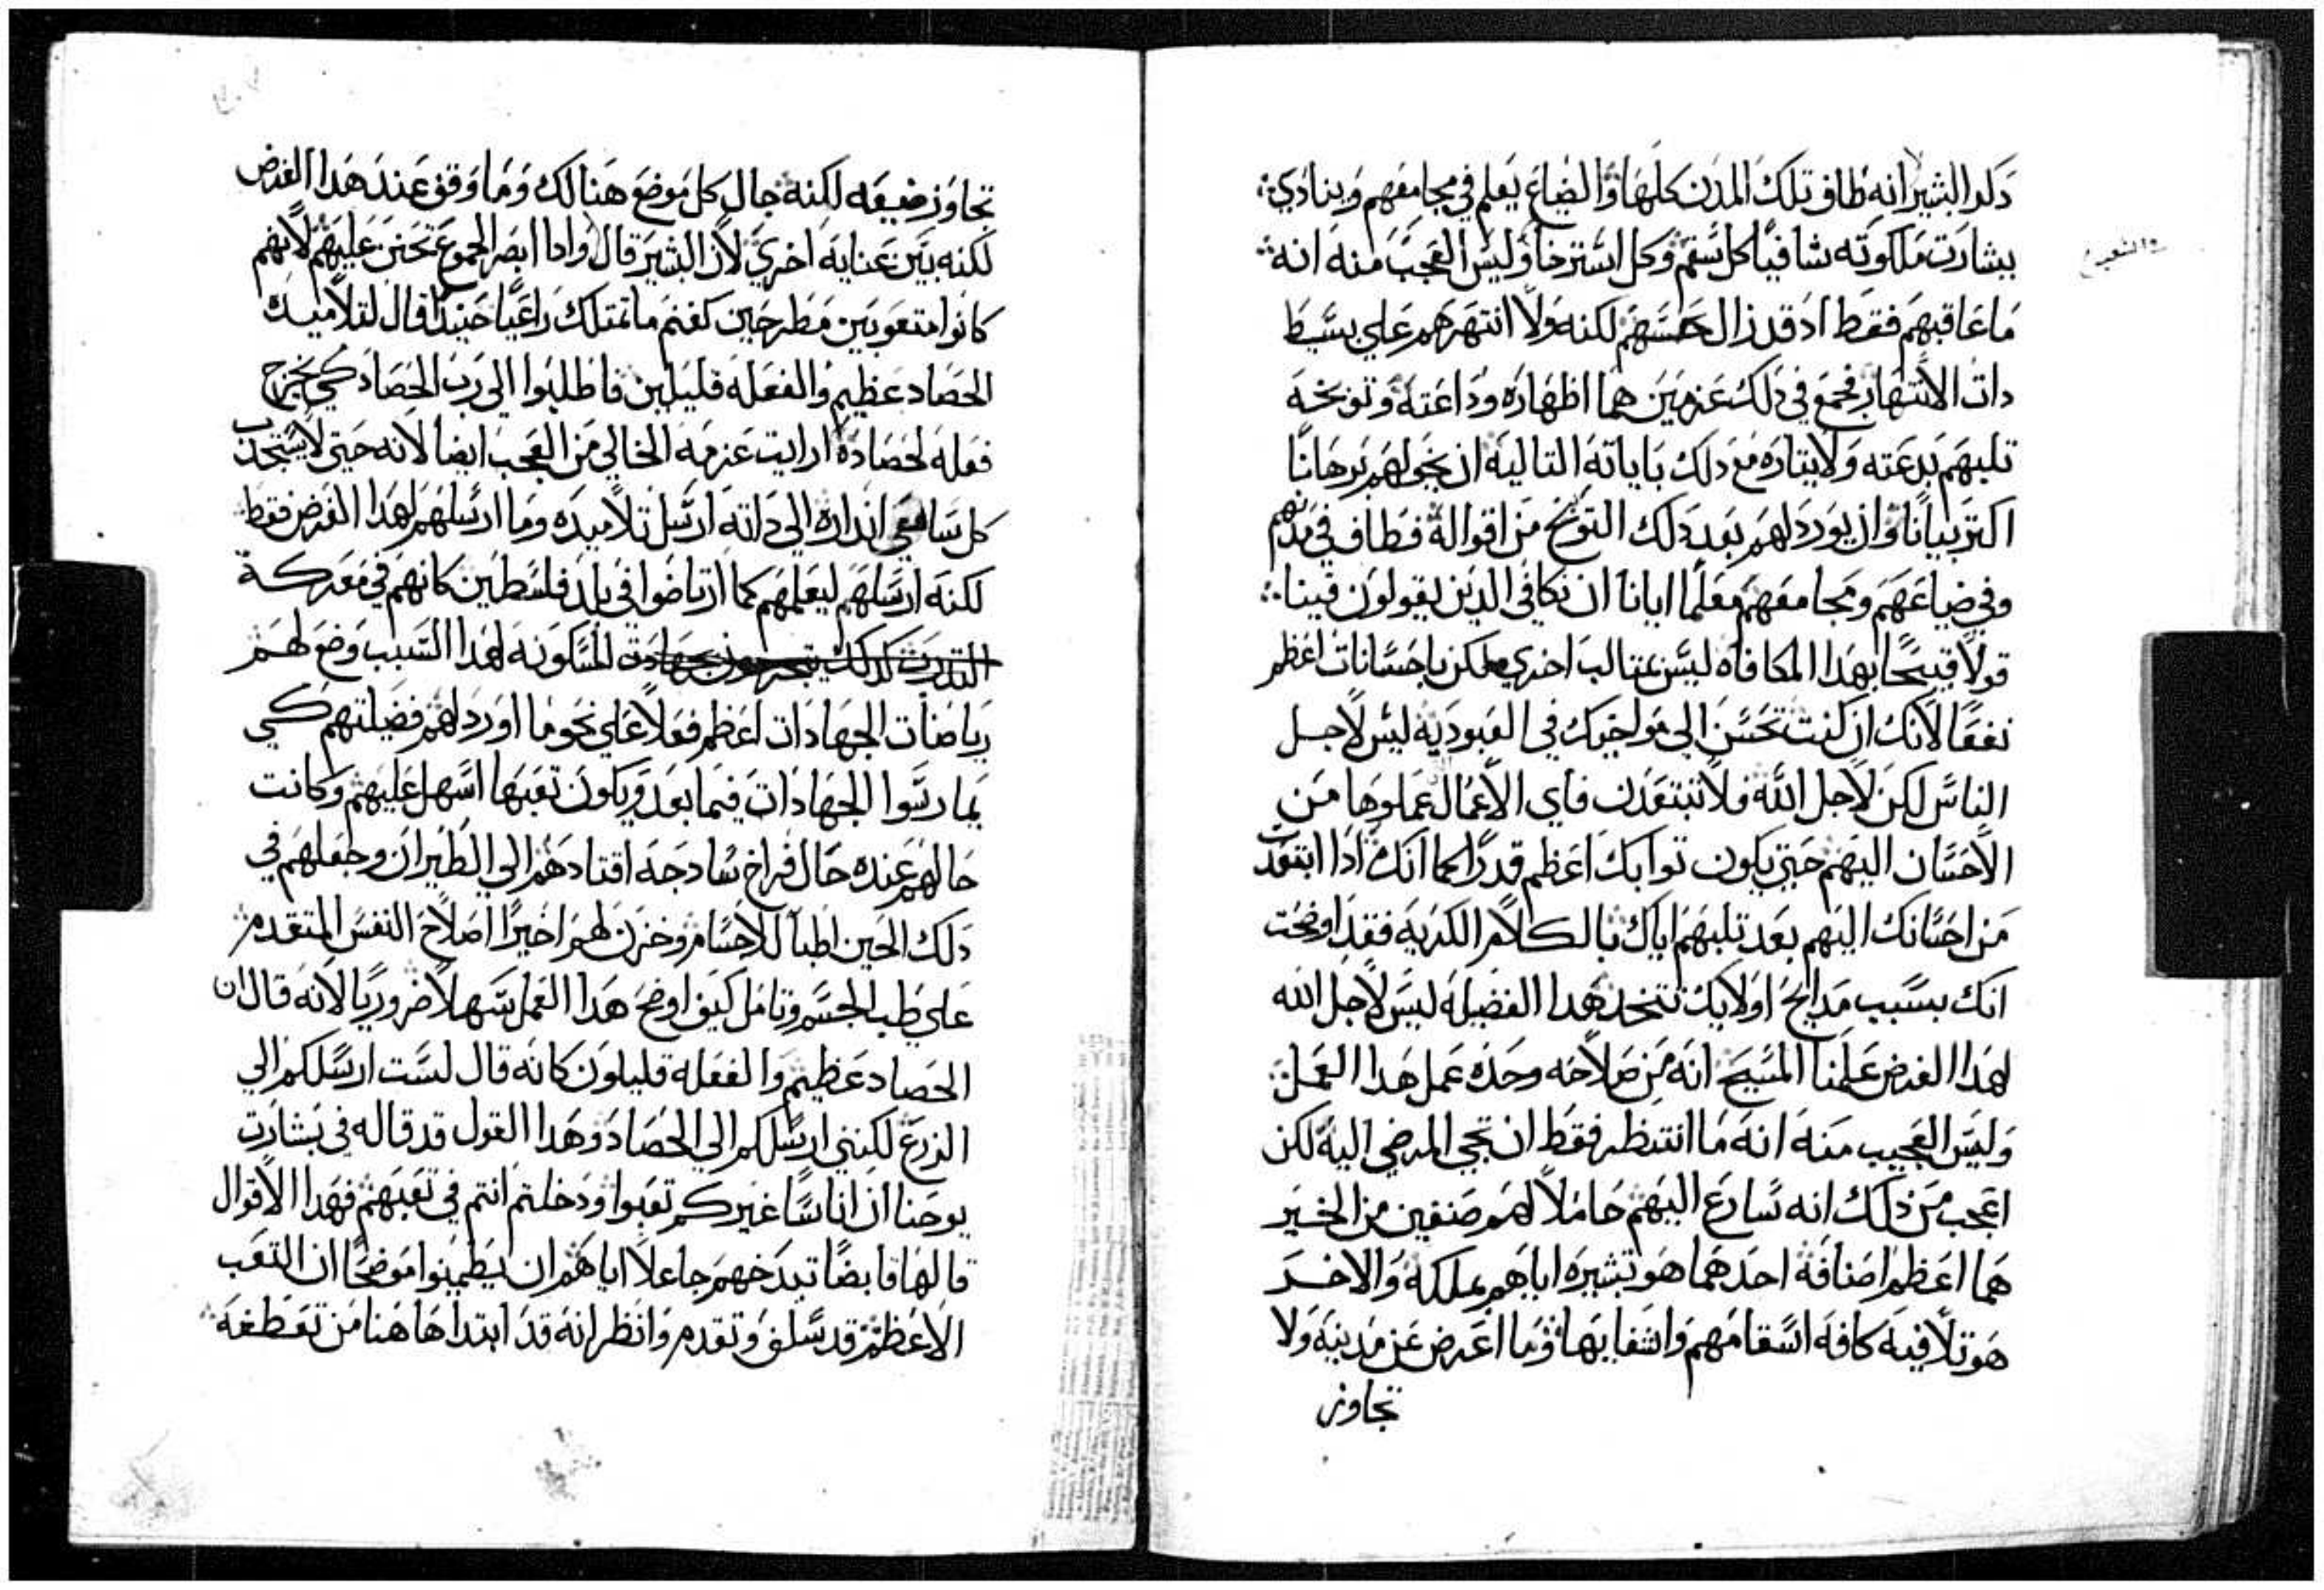 دكر البشير انه طاف تلك المدن كلها والضياع يعلم في مجامعهم وينادي
ببشارت ملكوته شافيًا كل سقم وكل استرخا وليس العجب منه انه
ما عاقبهم فقط اد قد زال حسهم لكنه ولا انتهرهم علي بسيط
دات الانتهار فجمع في دلك عزمين هما اظهاره وداعته وتوبخه
تلبهم بدعته ولايتاره مع دلك باياته التاليه ان يخولهم برهانًا
اكتر بيانًا وان يورد لهم بعد دلك التوبخ من اقواله فطاف في مدنهم
وفي ضياعهم ومجامعهم معلمًا ايانا ان نكافي الدين يقولون فينا
قولاً قبيحًا بهدا المكافاه ليس بمتالب اخري لكن باحسانات اعظم
نفعًا لانك ان كنت تحسن الي مواخيك في العبوديه ليس لاجل
الناس لكن لاجل الله فلا تبتعدن فاي الاعمال عملوها من
الاحسان اليهم حتي يكون توابك اعظم قدرًا كما انك ادا ابتعدت
من احسانك اليهم بعد تلبهم اياك بالكلام الكريه فقد اوضحت
انك بسبب مدايح اولايك تتخد هدا الفضيله ليس لاجل الله
لهدا الغرض علمنا المسيح انه من صلاحه وحده عمل هدا العمل
وليس العجيب منه انه ما انتظر فقط ان تجي المرضي اليه لكن
اعجب من ذلك انه سارع اليهم حاملاً لهم صنفين من الخير
هما اعظم اصنافه احدهما هو تبشيره اياهم بملكه والاخر
هو تلافيه كافه اسقامهم واشفايها وما اعرض عن مدينه ولا
تجاوز
تجاوز ضيعه لكنه جال كل موضع هنالك وما وقف عند هدا الغرض
لكنه بين عنايه اخري لان البشير قال وادا ابصر الجموع تحنن عليهم لانهم
كانوا متعوبين مطرحين كغنم ما تمتلك راعيًا حنيدًا قال لتلاميده
الحصاد عظيم والفعله قليلين فاطلبوا الي رب الحصاد كي يخرج
فعله لحصاده ارايت عزمه الخالي من العجب ايضا لانه حتي لا يستجدب
كل سامعي انداره الي داته ارسل تلاميده وما ارسلهم لهدا الغرض فقط
لكنه ارسلهم ليعلمهم كما ارتاضوا في بلد فلسطين كانهم في معركة
المسكونه لهدا السبب وضع لهم
رياضات الجهادات اعظم فعلاً علي نحو ما اورد لهم فضيلتهم كي
يمارسوا الجهادات فيما بعد ويكون تعبها اسهل عليهم وكانت
حالهم عنده حال فراخ سادجه اقتادهم الي الطيران وجعلهم في
دلك الحين اطبا للاجسام وخزن لهم اخيرًا اصلاح النفس المتقدم
علي طب الجسم وتامل كيف اوضح هدا العمل سهلاً ضروريًا لانه قال ان
الحصاد عظيم والفعله قليلون كانه قال لست ارسلكم الي
الزرع لكنني ارسلكم الي الحصاد وهدا القول قد قاله في بشارت
يوحنا ان اناسًا غيركم تعبوا ودخلتم انتم في تعبهم فهدا الاقوال
قالها قابضًا تبدخهم جاعلاً اياهم ان يطمينوا موضحًا ان التعب
الاعظم قد سلف وتقدم وانظر انه قد ابتدا هاهنا من تعطفه